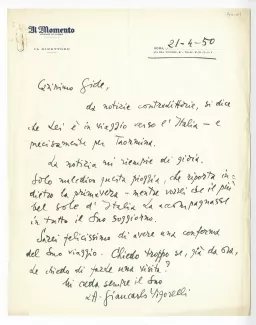 Il Momento
IL DIRETTORE
ROMA,
21-4-50
Carissimo Gide,
da notizie contraddittorie, si dice
che Lei è in viaggio verso l'Italia - e
precisamente per Taormina.
La notizia mi riempie di gioia.
Solo maledico questa pioggia, che riporta in-
dietro la primavera - mentre vorrei che il più
bel sole d'Italia La accompagnasse
in tutto il Suo soggiorno.
Sarei felicissimo di avere una conferma
del Suo viaggio. Chiedo troppo se, già da ora,
Le chiedo di farle una visita?
Mi creda sempre il Suo
Giancarlo Vigorelli